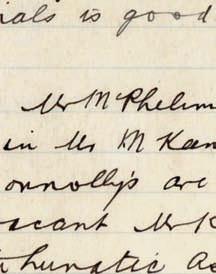 ials is good
Mr McPhelim
in Mr M Kan
onnolly's are
scant Mr K
lunatic as